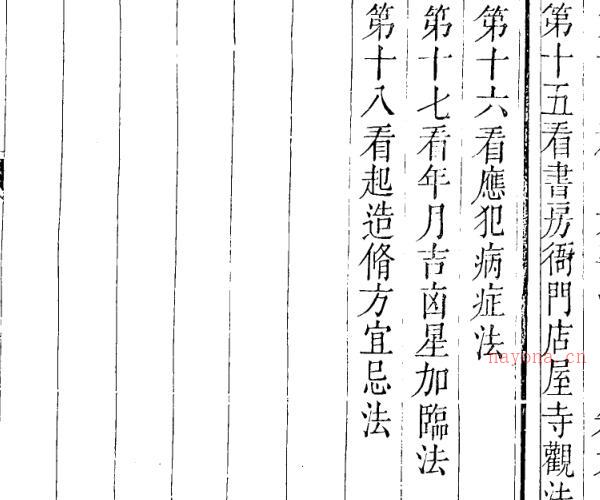 第十五看書房衙門店屋寺觀法
第十六看應犯病症法
第十七看年月吉凶星加臨法
第十八看起造脩方宜忌法
nayona.cn